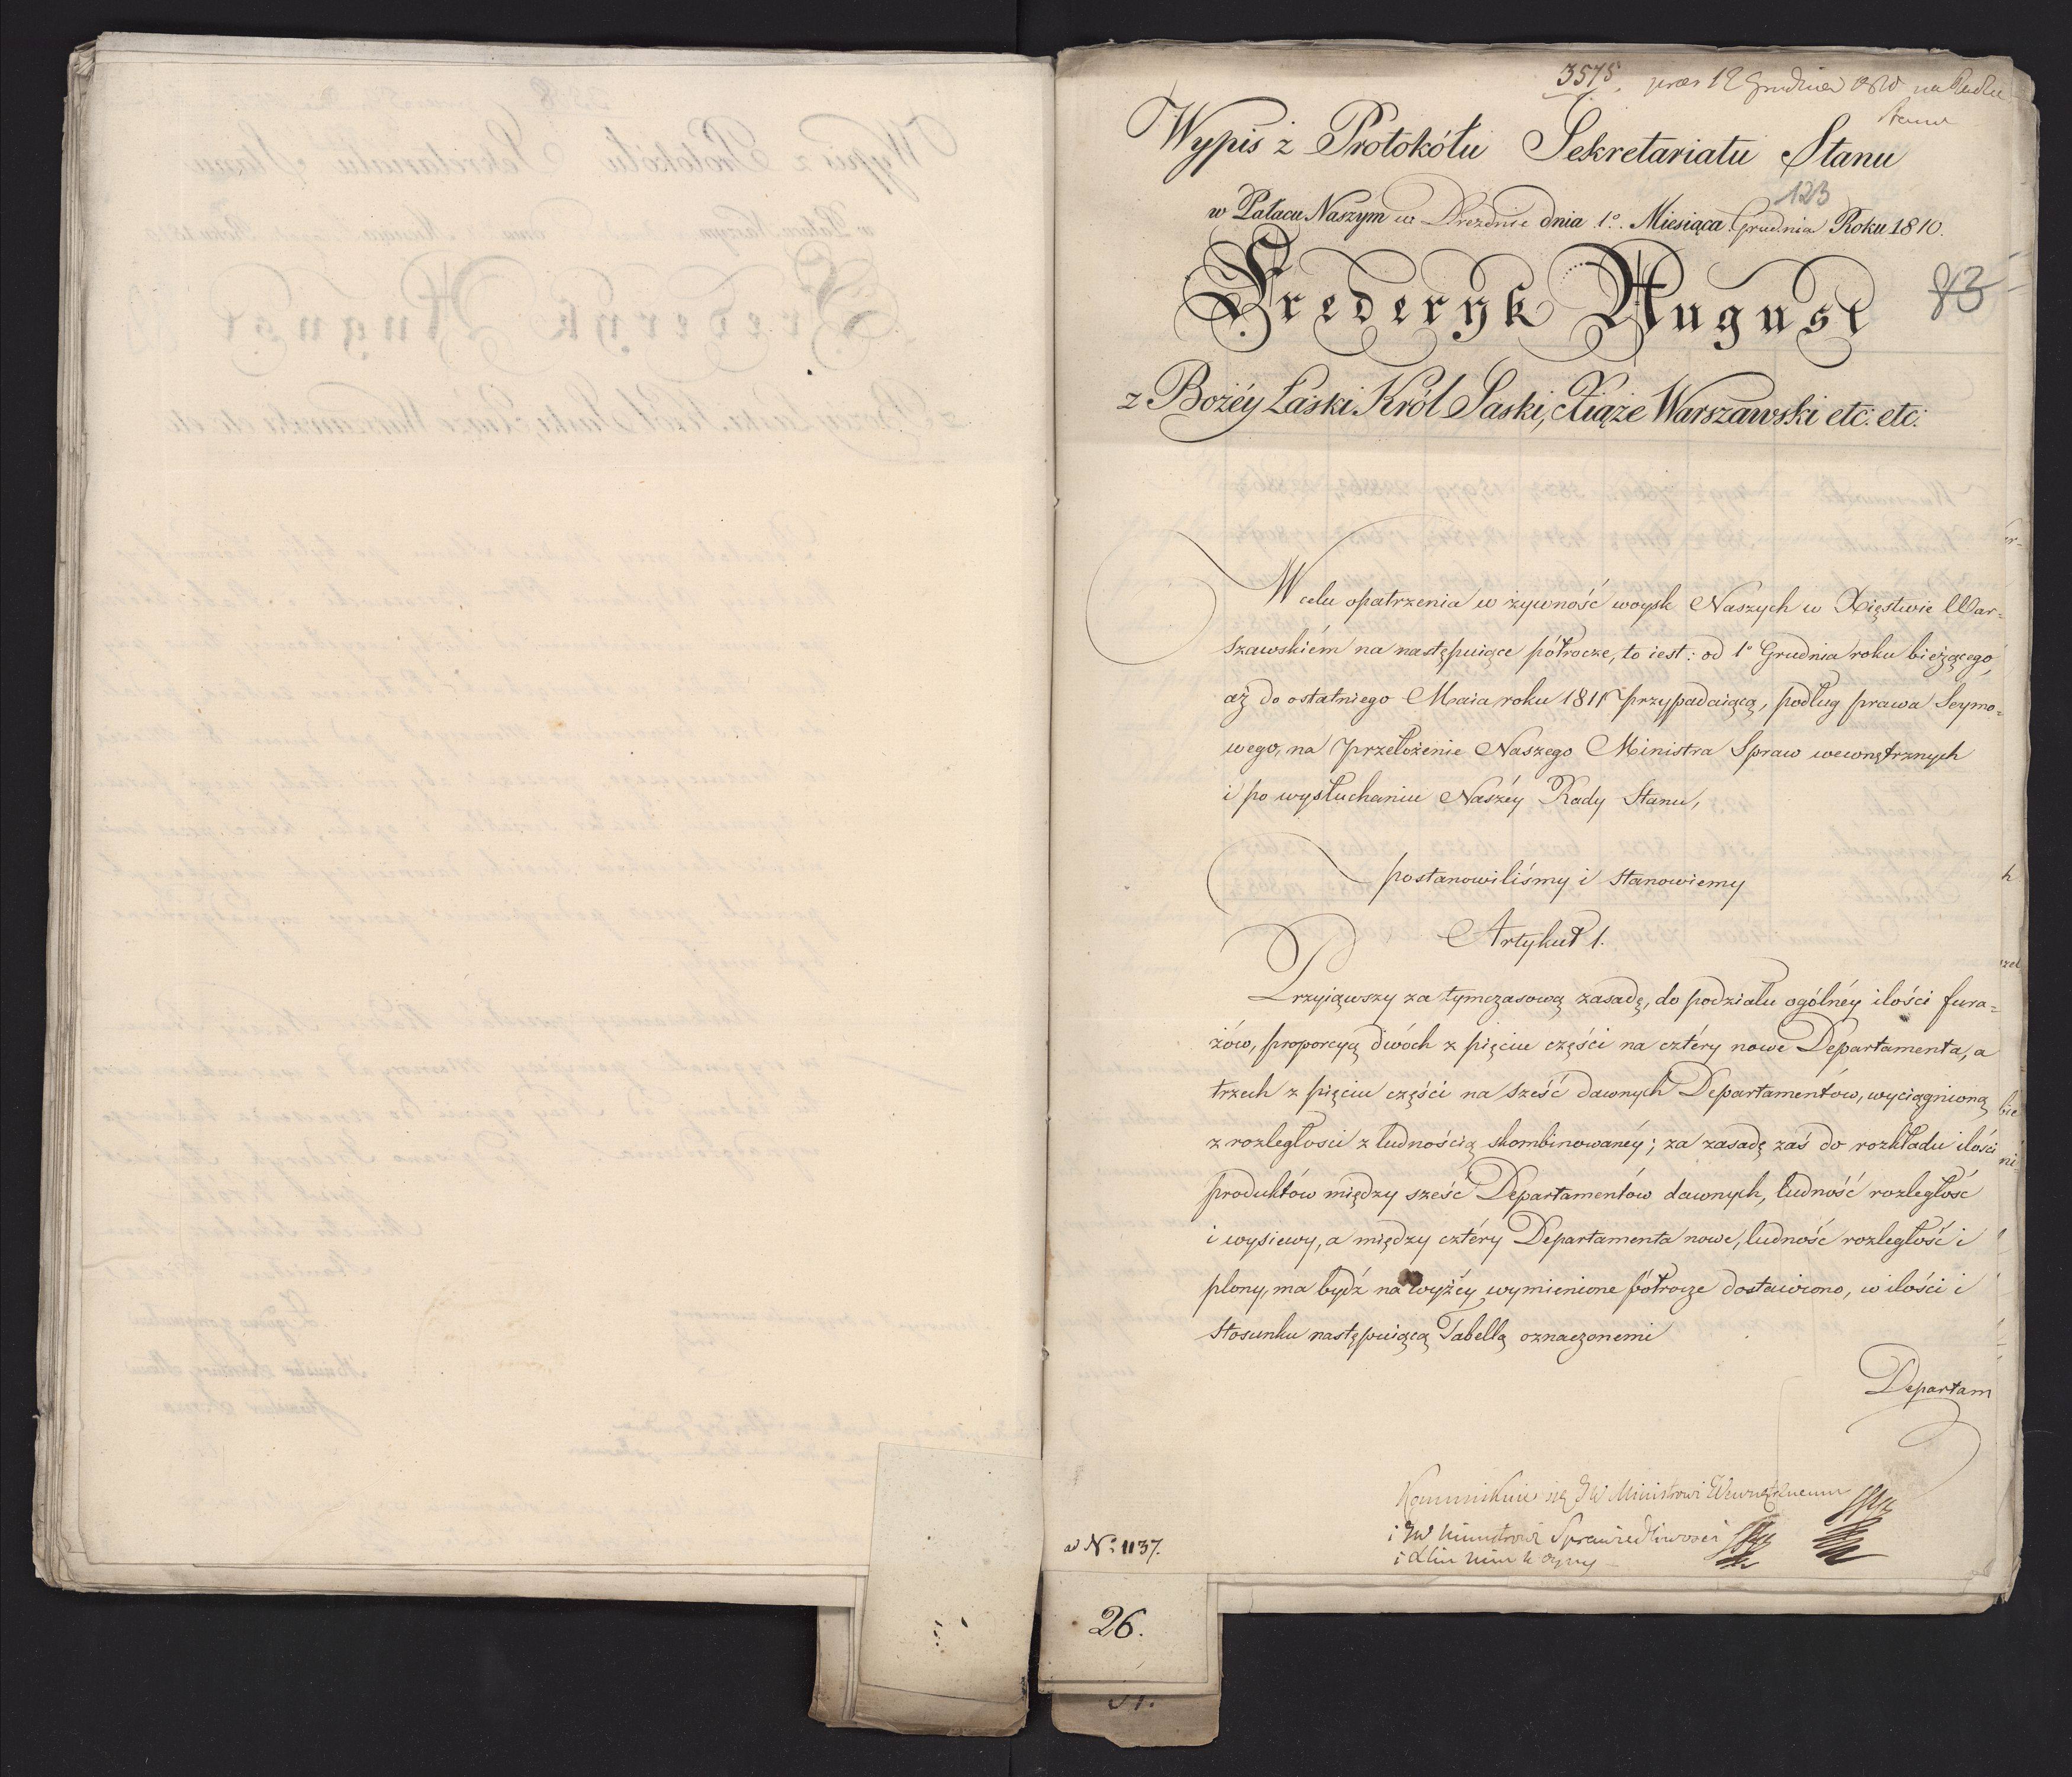 3575. praes 12 Grudnia 1810 na Radzie
Stanu
Wypis z Protokółu Sekretariatu Stanu
123
w Pałacu Naszym w Dreznie dnia 1º. Miesiąca Grudnia Roku 1810.
Frederyk August
83
z Bożéy Łaski Król Saski, Xiąże Warszawski etc: etc:
W celu opatrzenia w żywność woysk Naszych w Xięstwie War-
szawskiém na następuiące półrocze, to iest: od 1º Grudnia roku bieżącego,
aż do ostatniego Maia roku 1811 przypadaiącą, podług prawa Seymo-
wego, na przełożenie Naszego Ministra Spraw wewnętrznych
i po wysłuchaniu Naszéy Rady Stanu,
postanowiliśmy i stanowiemy
Artykuł 1.
Przyiąwszy za tymczasową zasadę, do podziału ogólnéy ilości fura-
żów, proporcyą dwóch z pięciu części na cztéry nowe Departamenta, a
trzech z pięciu części na sześć dawnych Departamentów, wyciągnioną
z rozległosci z ludnością skombinowanéy; za zasadę zaś do rozkładu ilości
produktów między sześć Departamentów dawnych, ludność rozległość
i wysiewy, a między cztéry Departamenta nowe, ludność rozległość i
plony, ma bydź na wyżéy wymienione półrocze dostawiono, w ilości i
stosunku następuiącą Tabellą oznaczonemi
Departam
Kommunikuie się JW Ministrowi Wewnętrznemu
i JW Ministrowi Sprawiedliwosci
ad Nº: 1137.
26.